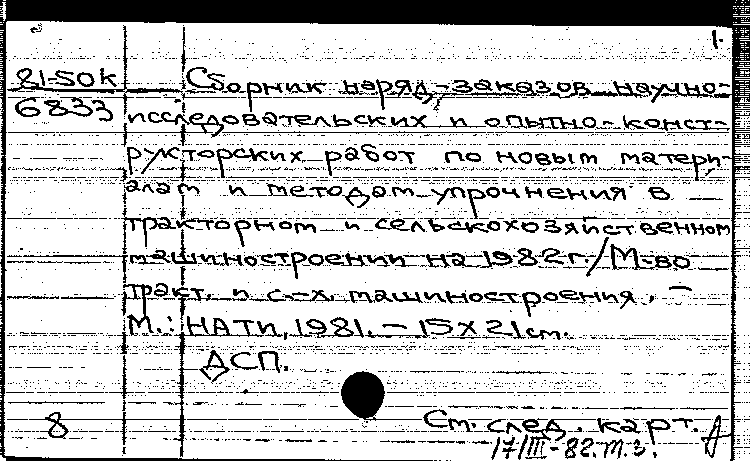 1.
81-50к Сборник наряд-заказов научно-
6833 исследовательских и опытно-конст-
рукторских работ по новым матери-
алам и методам упрочнения в
тракторном и сельскохозяйственном
машиностроении на 1982 г./М-во
тракт. и с.-х. машиностроения. –
М.: НАТИ, 1981. – 15х21 см.
ДСП.
8 См. след. карт.
17/III-82. т.з.